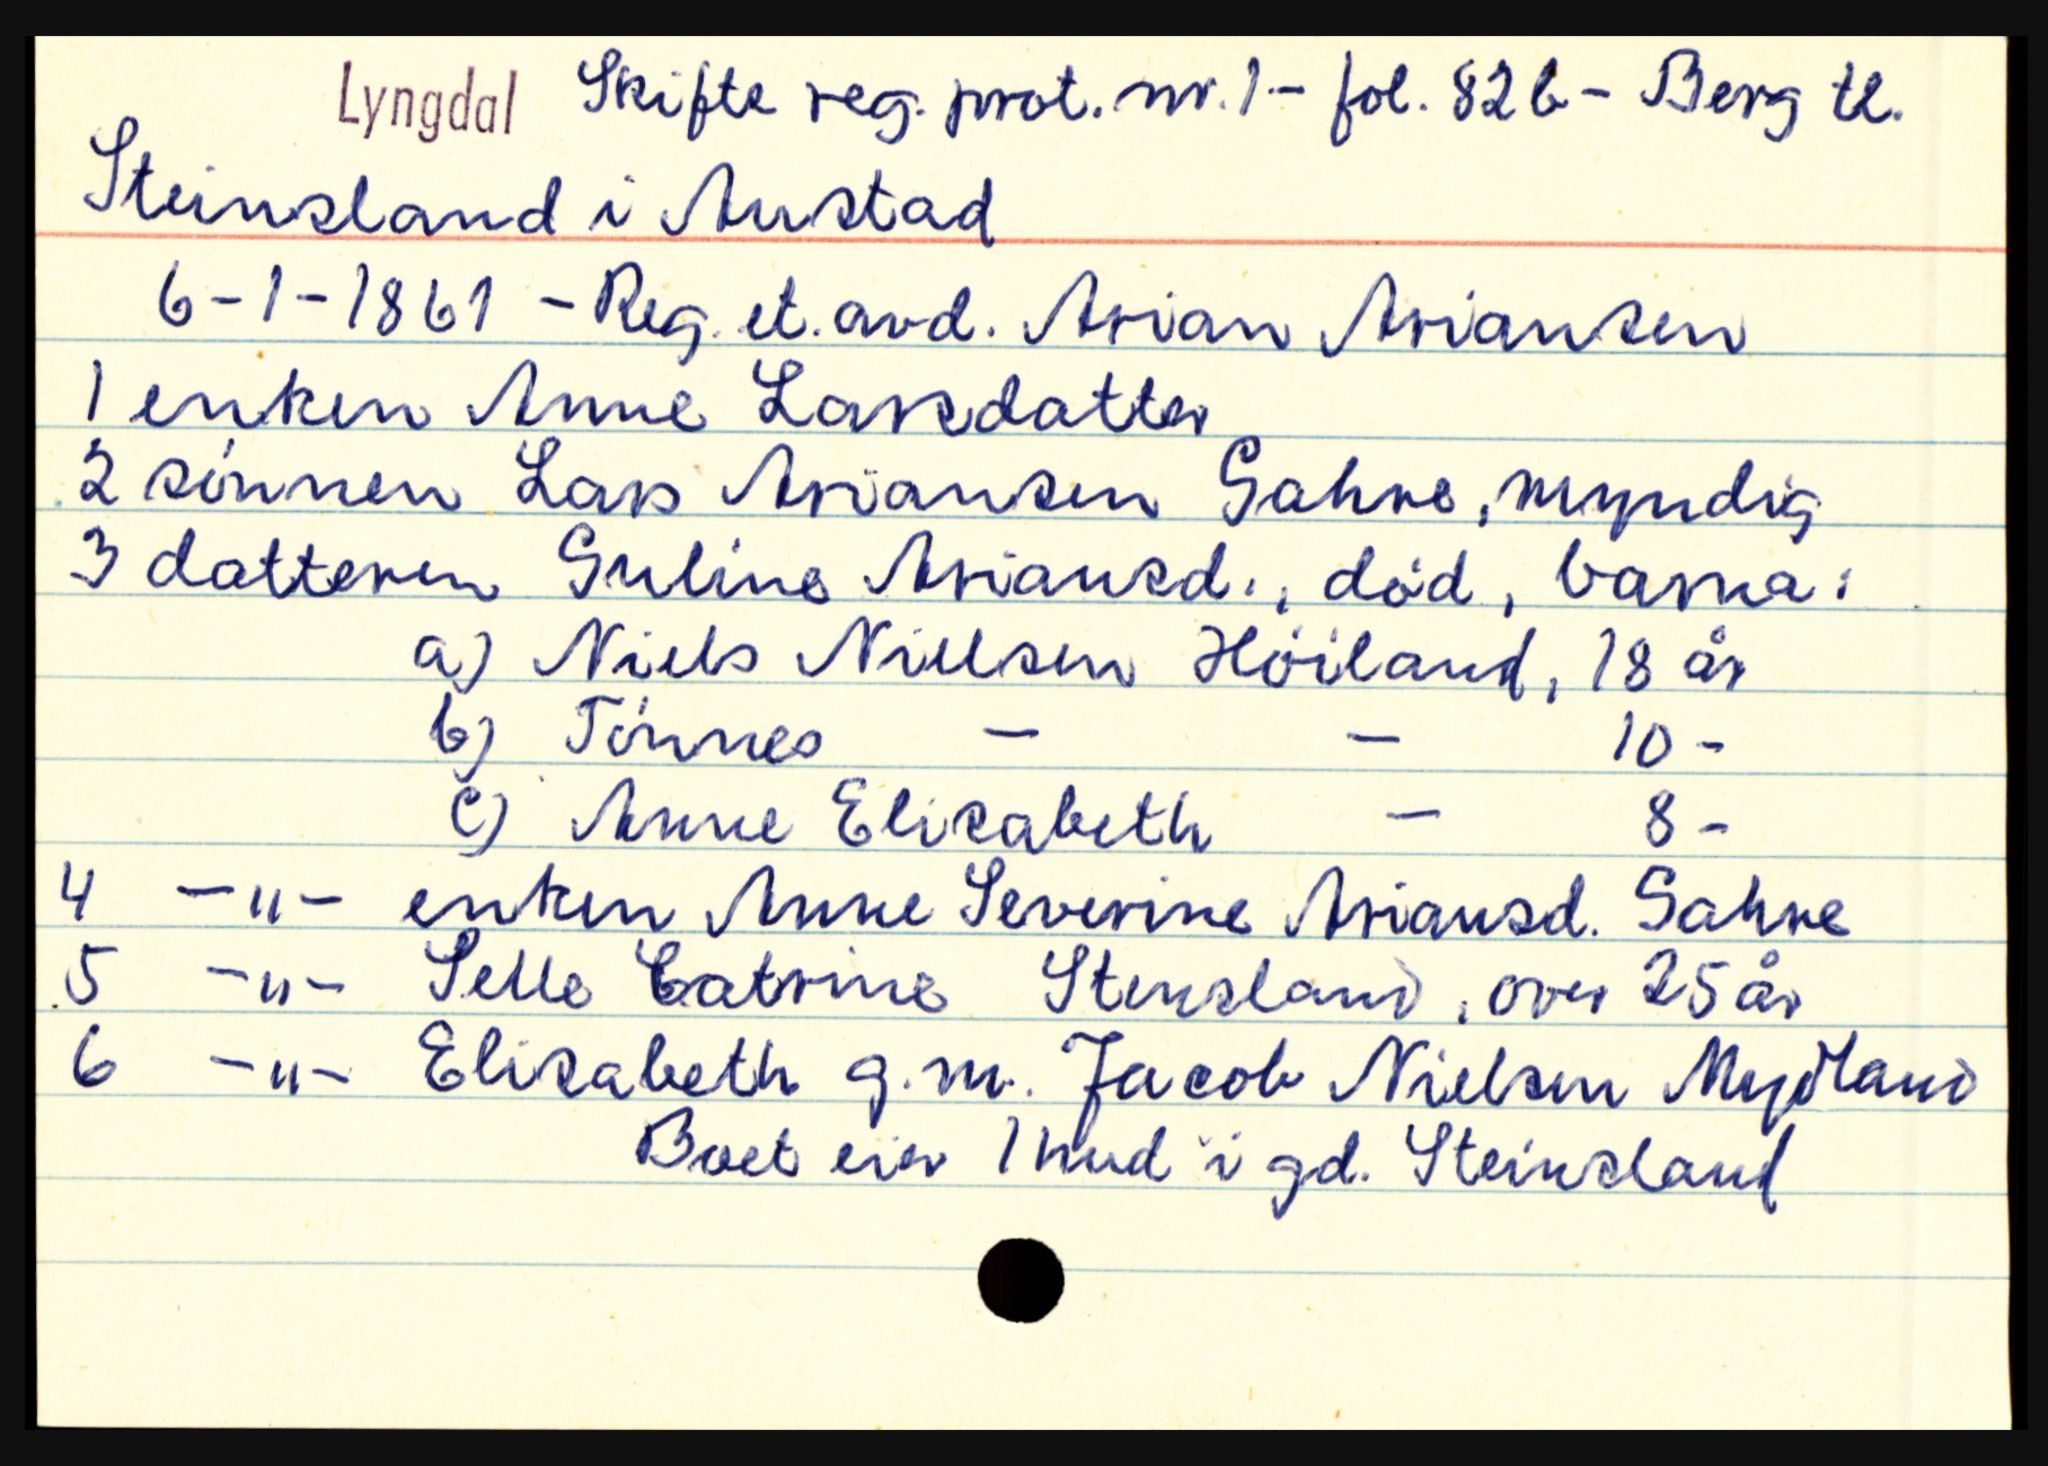 Lyngdal Skifte reg. prot. nr. 1 - fol. 82b - Berg tl.
Steinsland i Austad
6-1-1861 - Reg. et. avd. Arian Ariansen
1 enken Anne Larsdatter
2 sönnen Lars Ariansen Gahre, myndig
3 datteren Guline Ariansd., död, barna:
a) Niels Nielsen Höiland, 18 år
b) Tönnes - - 10 -
c) Anne Elisabeth - 8 -
4 -"- enken Anne Severine Ariansd. Gahre
5 -"- Selle Catrine Stensland, over 25 år
6 -"- Elisabeth g.m. Jacob Nielsen Mydland
Boet eier 1 hud i gd. Steinsland